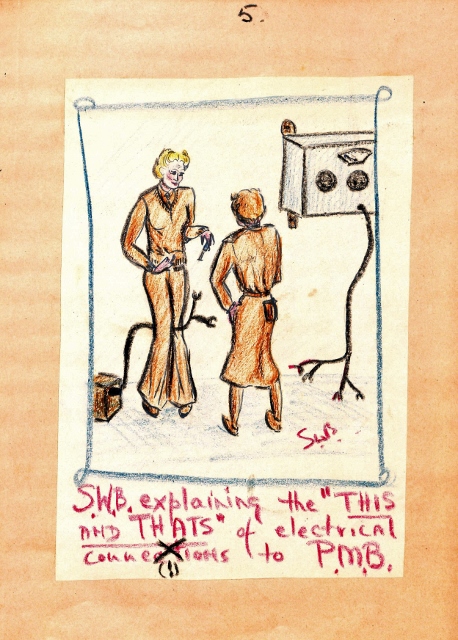 5.
SWB.
S.W.B. explaining the "THIS
AND THATS" of electrical
conneXions to P.M.B.
(!)